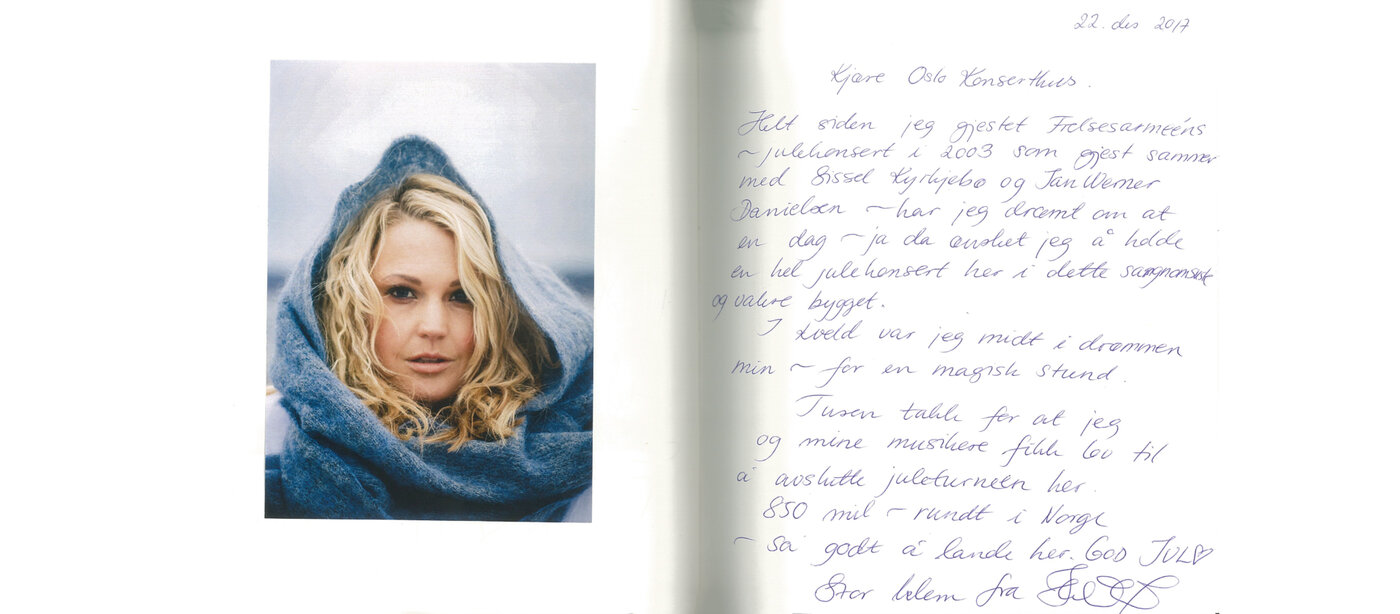 22. des 2017
Kjære Oslo Konserthus.
Helt siden jeg gjestet Frelsesarmeéns
~ julekonsert i 2003 som gjest sammen
med Sissel Kyrkjebø og Jan Werner
Danielsen ~ har jeg drømt om at
en dag ~ ja da ønsket jeg å holde
en hel julekonsert her i dette sagnomsuste
og vakre bygget.
I kveld var jeg midt i drømmen
min ~ for en magisk stund.
Tusen takk for at jeg
og mine musikere fikk lov til
å avslutte juleturnéen her.
850 mil ~ rundt i Norge
~ så godt å lande her. GOD JUL♡
Stor klem fra